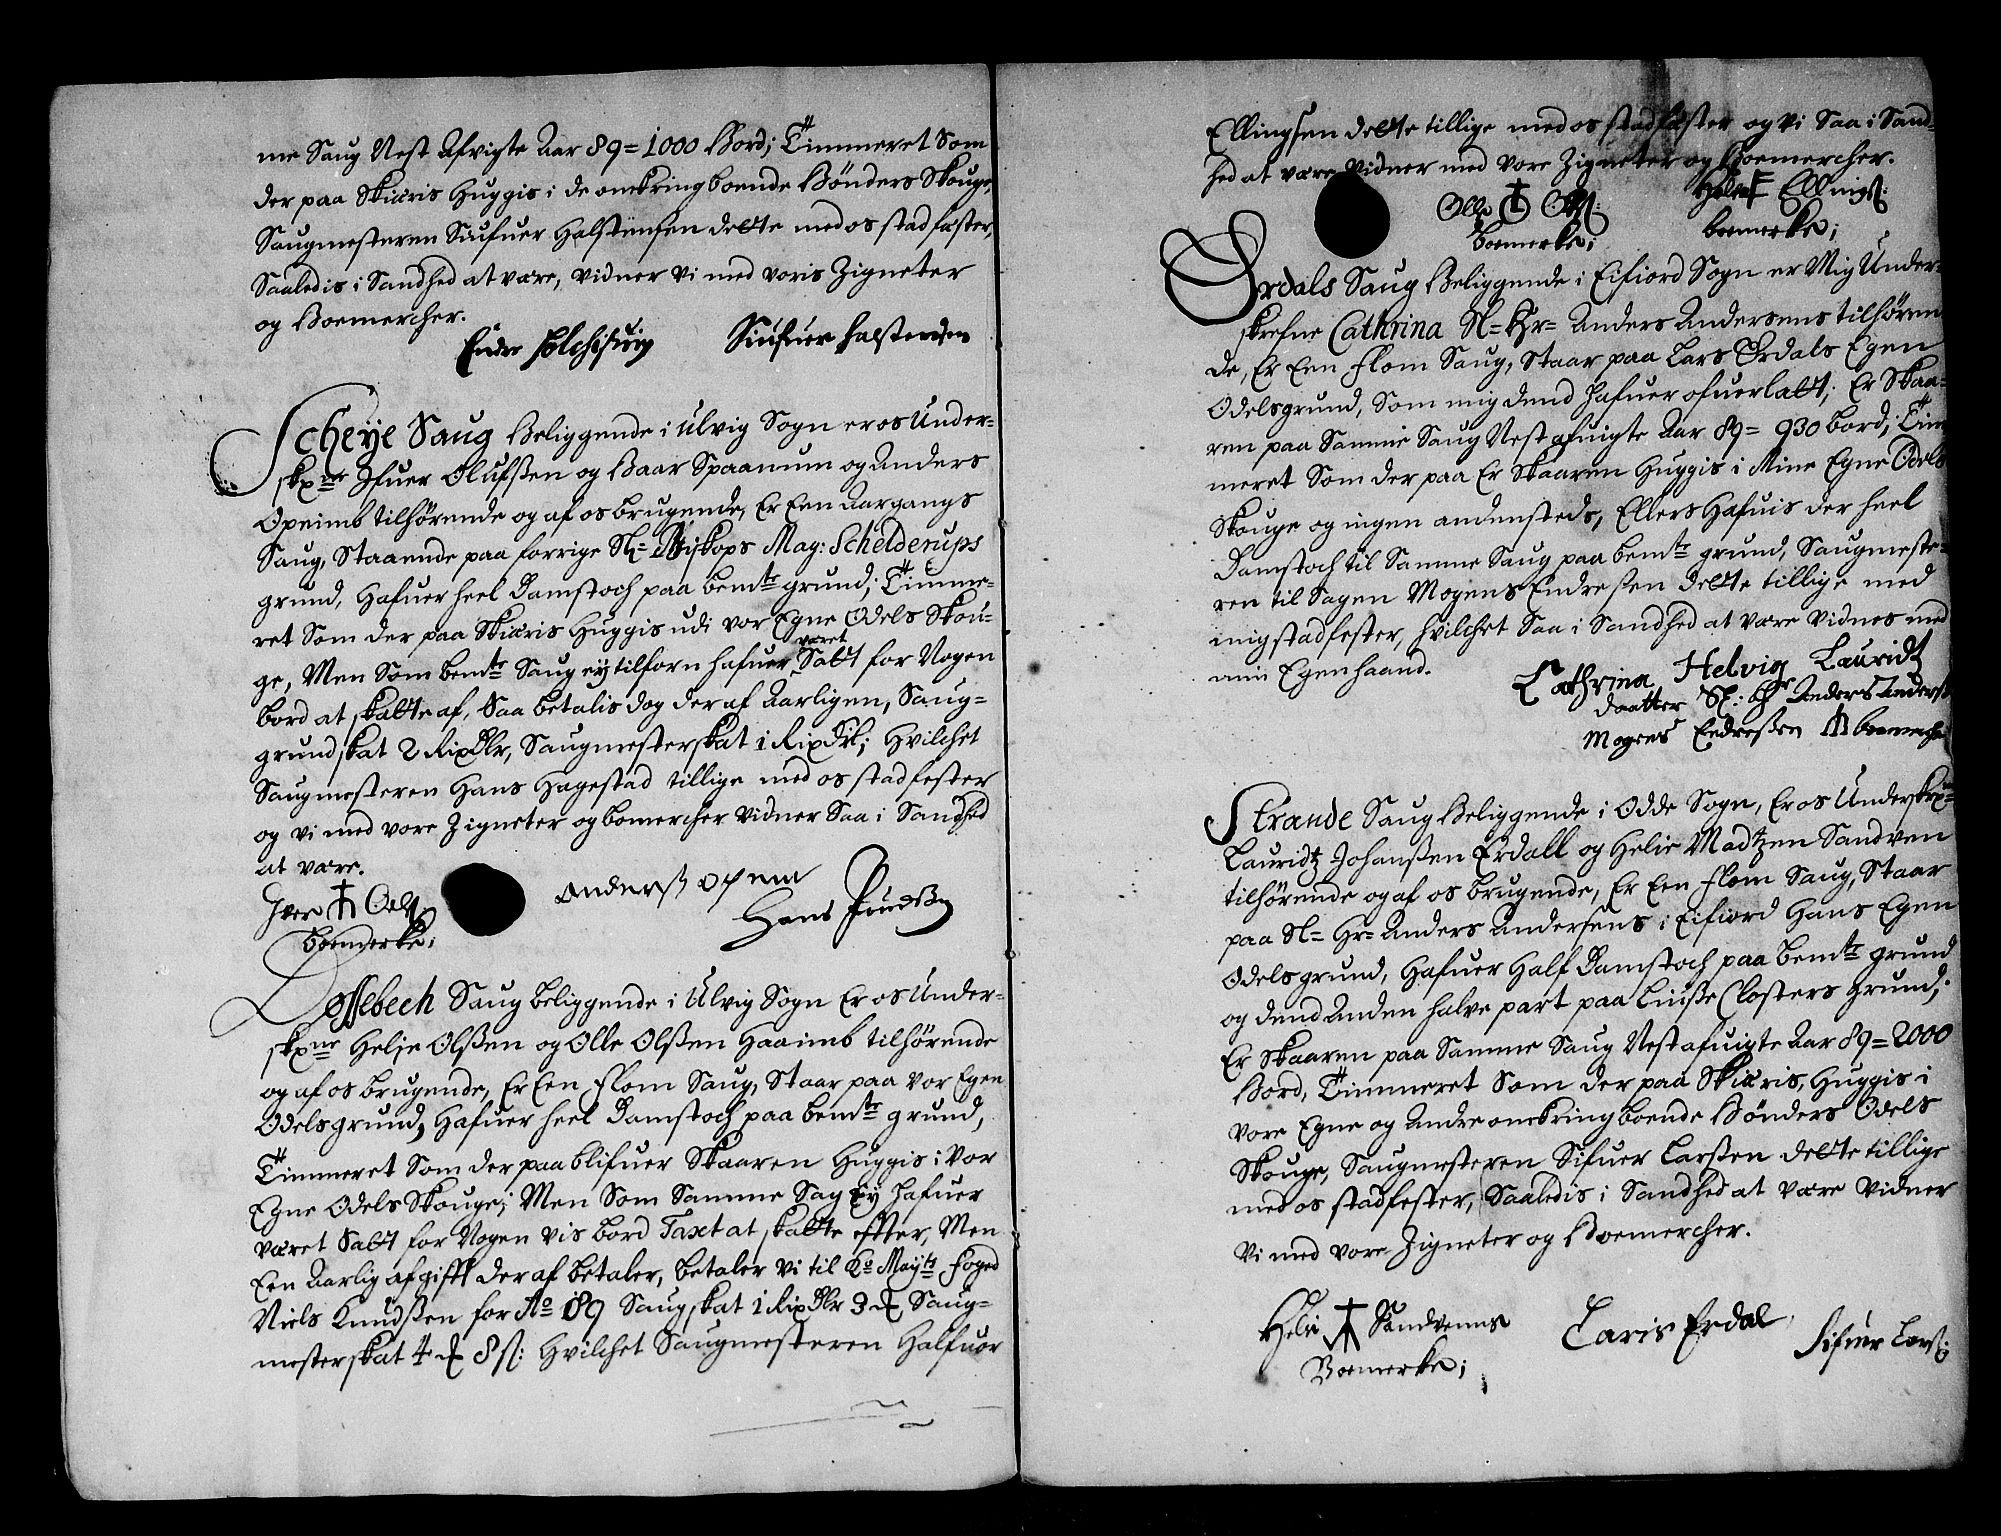 me Saug Nest Afvigte Aar 89 = 1000 Bord; Timmeret Som
der paa Skiæris Huggis i de omkring boende Bønders Skouge,
Saugmesteren Siufuer Halstensen dette med os stadfæster,
Saaledis i Sandhed at være, vidner vi med voris Zigneter
og Boemercher.
Siufuer Halstensen
Scheÿe Saug Beliggende i Ulvig Sogn er os Under-
skr.ne Ifuer Olufsen og Baar Spaanum og Anders
Opeimb tilhørende og af os brugende, Er Een Aargangs
Saug, Staaende paa forrige Sl= Biskops Mag: Schelderups
grund, Hafuer heel Damstoch paa bem.te grund; Timme-
ret Som der paa Skiæris Huggis udi vor Egne Odels Skou-
ge, Men Som bem.te Saug ey tilforn hafuer været Satt for Nogen
bord at skatte af, Saa betalis dog der af Aarligen, Saug-
grundskat 2 RixDlr, Saugmesterskat 1 RixDlr; Hvilchet
Saugmesteren Hans Hagestad tillige med os stadfester
og vi med vore Zigneter og bomercher vidner Saa i Sandhed
at være.
Iver Ols:
boemerke;
Anders Opem
Hans
Døssebech Saug beliggende i Ulvig Sogn Er os Under-
skr.ne Helje Olßen og Olle Olßen Haaimb tilhørende
og af os brugende, Er Een Flom Saug, Staar paa vor Egen
Odelsgrund, Hafuer heel Damstoch paa bem.te grund,
Timmeret Som der paa blifuer Skaaren Huggis i vor
Egne Odels Skouge; Men Som Samme Sag Ey hafuer
været Satt for Nogen vis bord Taxt at skatte efter, Men
Een Aarlig afgifft der af betaler, betaler vi til Ko May.ts foged
Niels Knudßen for Ao 89 Saugskat 1 RixDlr 3 mk Saug-
mesterskat 4 mk 8 s: Hvilchet Saugmesteren Halfuor
Ellingsen dette tillige med os stadfæster og vi Saa i Sand-
hed at være vidner med vore Zigneter og Boemercher.
Olle Ols:
boemerke;
Ellings:
boemerke;
Ørdals Saug Beliggende i Eifiord Sogn er Mig Under-
skrefne Cathrina Sl= Hr= Anders Andersens tilhøren
de, Er Een Flom Saug, Staar paa Lars Ørdals Egen
Odelsgrund, Som mig dend hafuer ofuerlatt; Er Skaa-
ren paa Samme Saug Nest afuigte Aar 89 = 930 bord; Tim
meret Som der paa Er Skaaren Huggis i Mine Egne Odels
Skouge og ingen andensteds, Ellers Hafuis der heel
Damstoch til Samme Saug paa bem.te grund, Saugmeste-
ren til Sagen Mogens Endresen dette tillige med
mig stadfester, Hvilchet Saa i Sandhed at være vidnes med
min Egen haand.
Cathrina Helvig Lauridtz
daatter Sl: Hr Anders Anders
Mogens Endreßen boemerche
Strande Saug Beliggende i Odde Sogn, Er os Underskr.ne
Lauridtz Johanßen Erdall og Helie Madtzen Sandven
tilhørende og af os brugende, Er Een Flom Saug, Staar
paa Sl= Hr= Anders Andersens i Eifiord Hans Egen
Odelsgrund, Hafuer Half Damstoch paa bem.te grund
og dend Anden halve part paa Liuße Closters grund;
Er Skaaren paa Samme Saug Nest afuigte Aar 89 = 2000
Bord, Timmeret Som der paa Skiæris, Huggis i
vore Egne og Andre omkring boende Bønders Odels
Skouge, Saugmesteren Sifuer Larßen dette tillige
med os stadfester, Saaledis i Sandhed at være vidner
vi med vore Zigneter og Boemercher.
Helie Sandvenns
Boemerke;
Laris Erdal
Sifuer Lars: